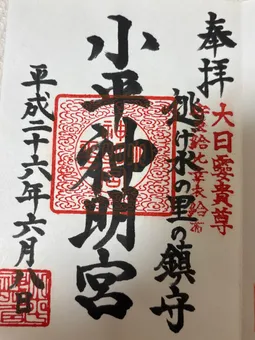 奉拝
大日孁貴尊
逃げ水の里の鎮守
小平神明宮
平成二十六年六月八日